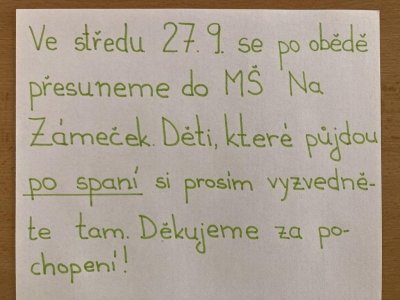 Ve středu 27. 9. se po obědě
přesuneme do MŠ Na
Zámeček. Děti, které půjdou
po spaní si prosím vyzvedně-
te tam. Děkujeme za po-
chopení!